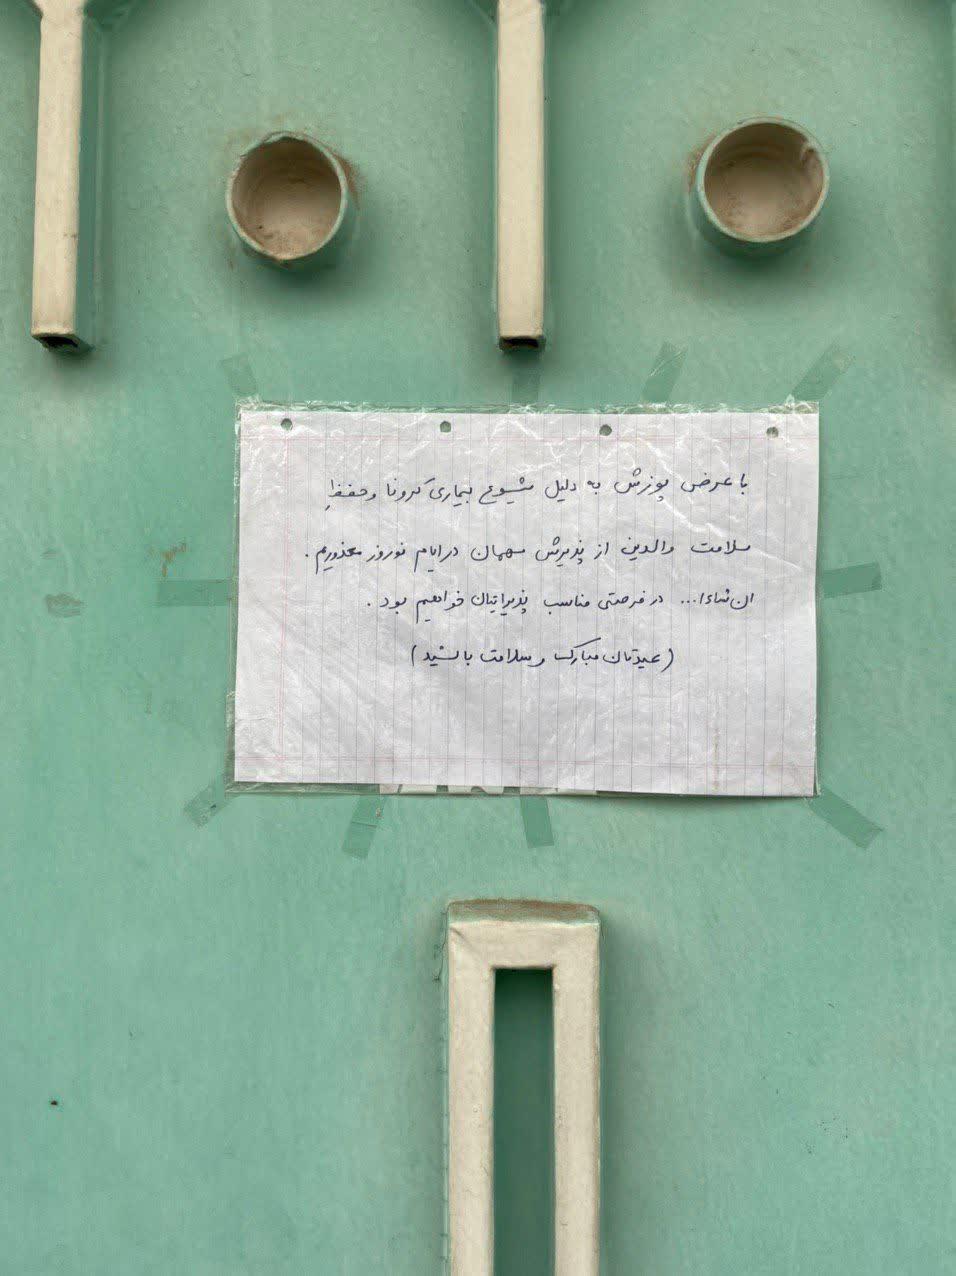 با عرض پوزش به دلیل شیوع بیماری کرونا و حفظِ
سلامت والدین از پذیرش مهمان در ایام نوروز معذوریم.
ان شاءا... در فرصتی مناسب پذیرایتان خواهیم بود.
(عیدتان مبارک و سلامت باشید)